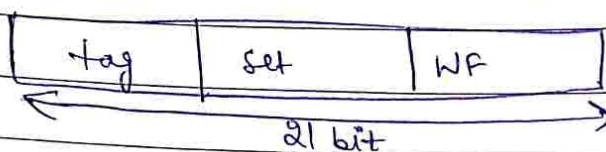 tag set WF
21 bit